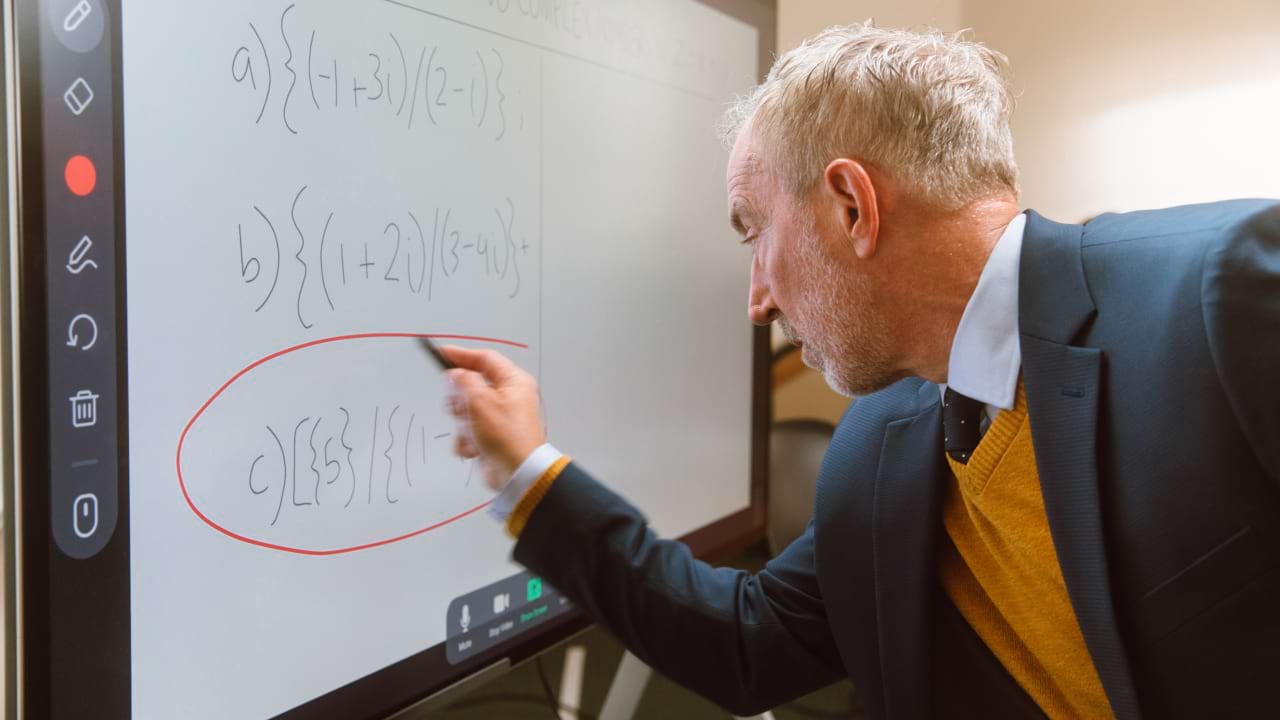 COMPLEX
a) { (-1+3i)/(2-i) } ;
b) { (1+2i)/(3-4i) } +
c) [ { 5 } / { (1-
Mute Stop Video Share Screen